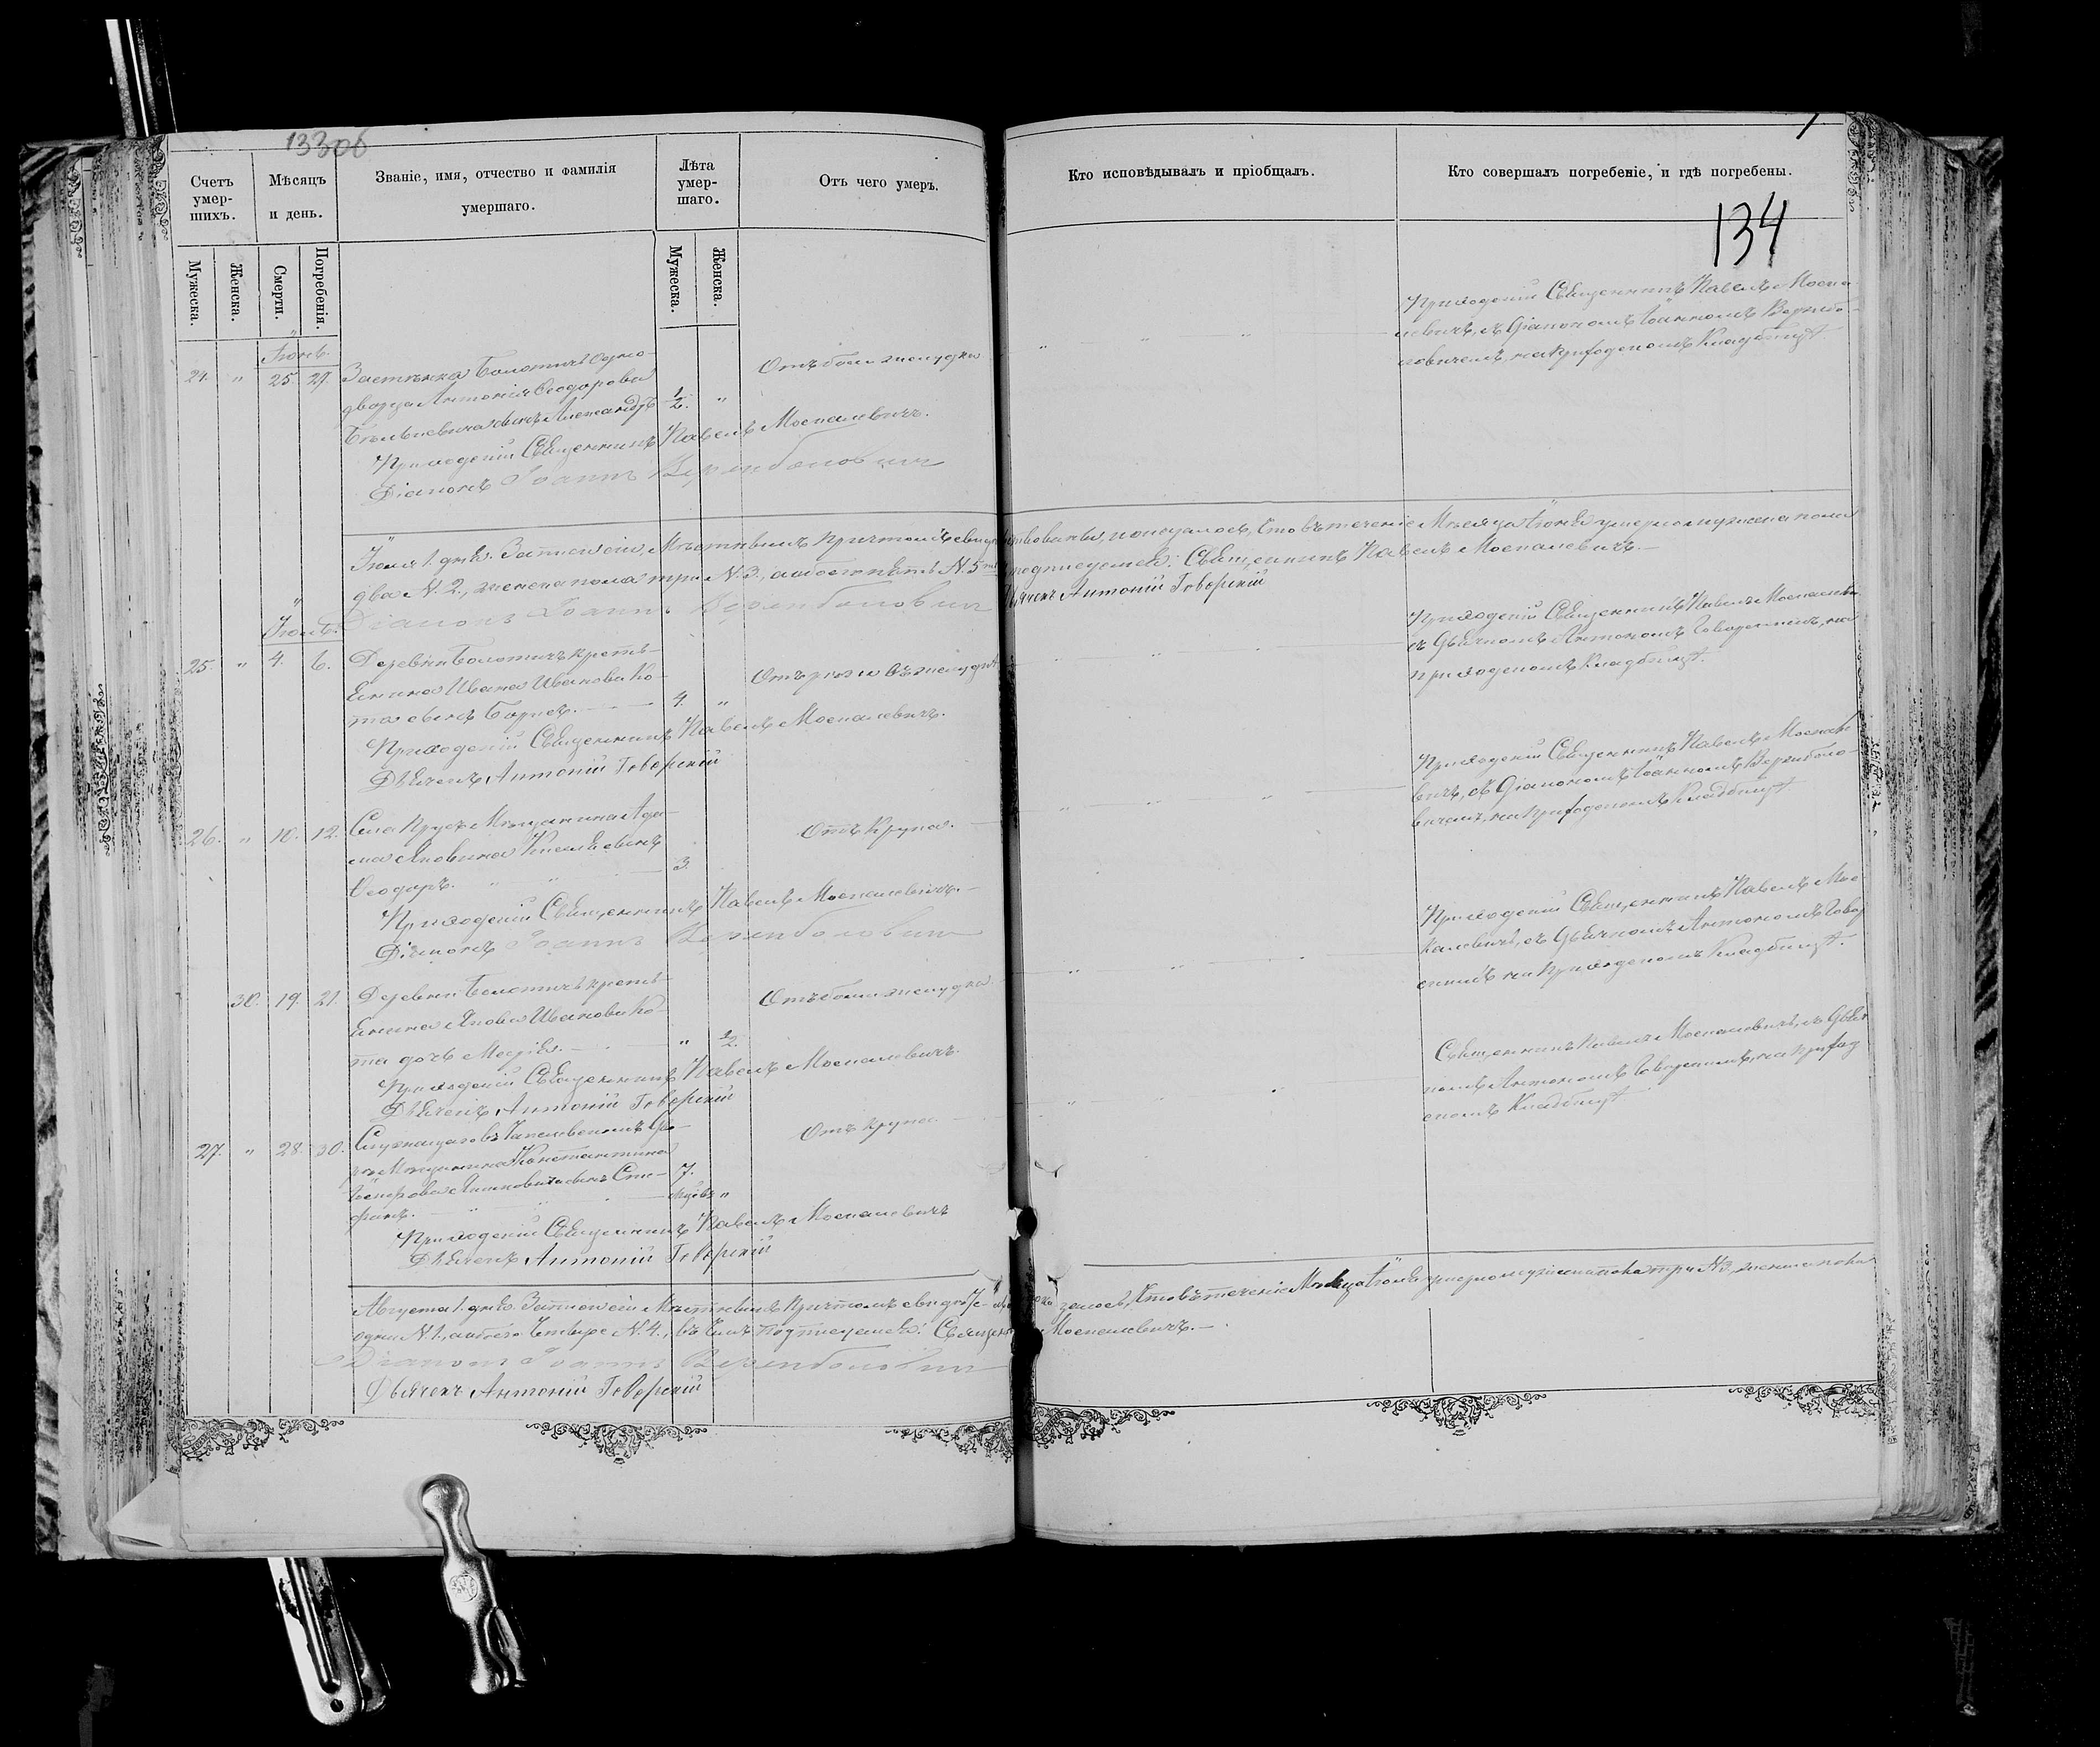 133об
134
Счетъ умер-шихъ.
Мѣсяцъ и день.
Званіе, имя, отчество и фамилія
умершаго.
Лѣта умер-шаго.
Отъ чего умеръ.
Кто исповѣдывалъ и пріобщалъ.
Кто совершалъ погребеніе, и гдѣ погребены.
Мужеска.
Женска.
Смерти.
Погребенія.
Мужеска.
Женска.
Іюнь.
24. " 25. 27.
Застѣнка Болотичъ Одно-
дворца Антонія Ѳеодорова
сынъ Александръ 1/2. "
Отъ боли желудка
Приходскій Священникъ Павелъ Моска
левичъ, съ Діакономъ Іоанномъ Вержбо-
ловичемъ, на приходскомъ кладбищѣ.
Приходскій Священникъ Павелъ Москалевичъ.
Діаконъ Іоаннъ Вержболовичъ
Іюля 1. дня. Записи сіи Мѣстнымъ Причтомъ свидѣтельствованы, и оказалось, что въ теченіе Мѣсяца Іюня умерло мужеска пола
два N. 2., женска пола три N. 3., а обоего пять N. 5 подписуемся: Священникъ Павелъ Москалевичъ.
Діаконъ Іоаннъ Вержболовичъ Дьячекъ Антоній Говорскій
Іюль.
25. " 4. 6.
Деревни Болотичъ кресть-
янина Ивана Иванова Ко-
та сынъ Борисъ. 4. "
Отъ рези въ желудкѣ
Приходскій Священникъ Павелъ Москалевичъ
съ Дьячкомъ Антономъ Говорскимъ, на
приходскомъ кладбищѣ.
Приходскій Священникъ Павелъ Москалевичъ.
Дьячекъ Антоній Говорскій
26. " 10. 12.
Села Прусъ Мѣщанина Ада-
ма Яковина сынъ
Ѳеодоръ. 3.
Отъ Крупа.
Приходскій Священникъ Павелъ Москале
вичъ, съ Діакономъ Іоанномъ Вержболо-
вичемъ, на приходскомъ кладбищѣ
Приходскій Священникъ Павелъ Москалевичъ.
Діаконъ Іоаннъ Вержболовичъ
30. 19. 21.
Деревни Болотичъ кресть-
янина Якова Иванова Ко-
та дочь Марія. " 1/2.
Отъ боли желудка.
Приходскій Священникъ Павелъ Мос
калевичъ, съ Дьячкомъ Антономъ Говор
скимъ на приходскомъ кладбищѣ.
Приходскій Священникъ Павелъ Москалевичъ.
Дьячекъ Антоній Говорскій
27. " 28. 30.
Мѣщанина Константина
сынъ Сте-
фанъ. 7. "
Отъ Крупа.
Священникъ Павелъ Москалевичъ, съ Дьяч
комъ Антономъ Говорскимъ, на приход
скомъ кладбищѣ
Приходскій Священникъ Павелъ Москалевичъ
Дьячекъ Антоній Говорскій
Августа 1. дня. Записи сіи Мѣстнымъ Причтомъ оказалось, что въ теченіе Мѣсяца Іюля умерло мужеска пола три N 3, женска пола
одна N 1., а обоего четыре N. 4., въ чемъ подписуемся: Священникъ Москалевичъ.
Діаконъ Іоаннъ Вержболовичъ
Дьячекъ Антоній Говорскій